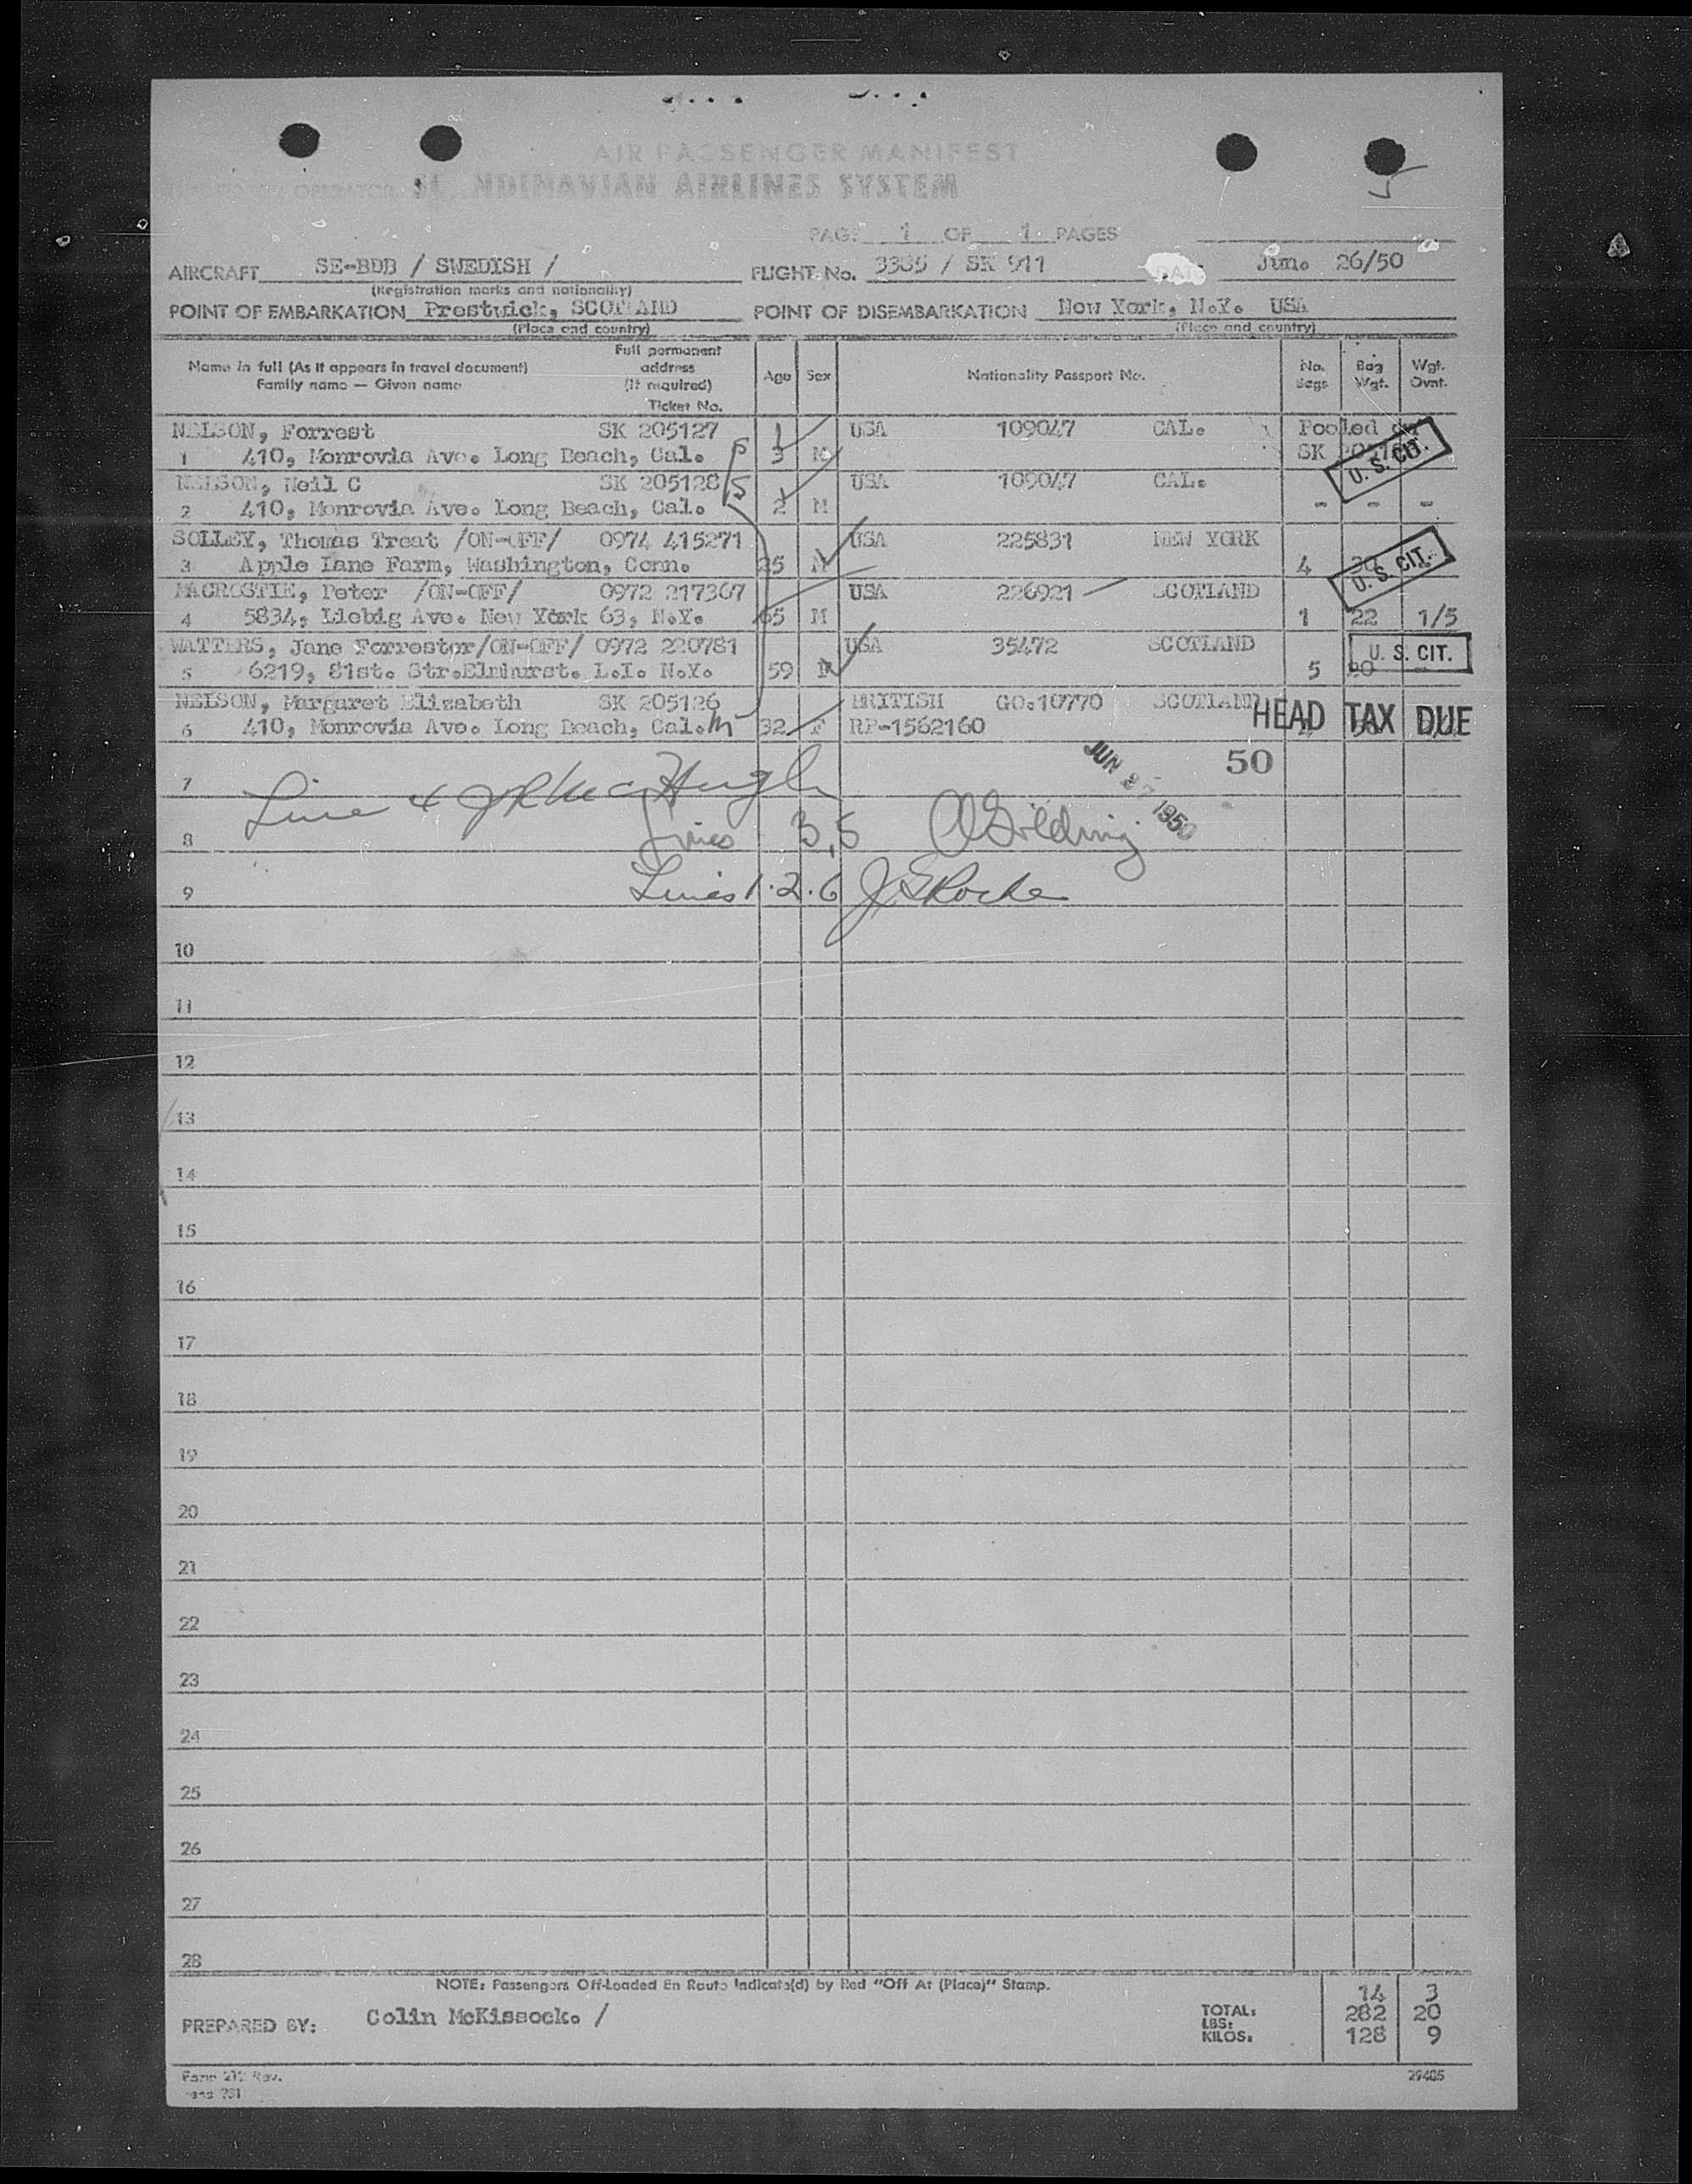 AIR PASSENGER MANIFEST
OPERATOR SC NDINAVIAN AIRLINES SYSTEM
PAGE 1 OF 1 PAGES
AIRCRAFT SE-BDB / SWEDISH / FLIGHT No. 3385 / SK 911 DATE June 26/50
(Registration marks and nationality)
POINT OF EMBARKATION Prestwick, SCOTLAND POINT OF DISEMBARKATION New York, N.Y. USA
(Place and country) (Place and country)
Name in full (As it appears in travel document) Family name — Given name Full permanent address (If required) Ticket No. Age Sex Nationality Passport No. No. Bags Bag Wgt. Wgt. Ovnt.
NELSON, Forrest SK 205127 USA 109047 CAL. Pooled
1 410, Monrovia Ave. Long Beach, Cal. 3 M SK U. S. CIT.
NELSON, Neil C SK 205128 USA 109047 CAL.
2 410, Monrovia Ave. Long Beach, Cal. 2 M - - -
SOLLEY, Thomas Treat /ON-OFF/ 0974 415271 USA 225831 NEW YORK
3 Apple Lane Farm, Washington, Conn. 25 M 4 U. S. CIT.
MACROSTIE, Peter /ON-OFF/ 0972 217367 USA 226921 SCOTLAND
4 5834, Liebig Ave. New York 63, N.Y. 65 M 1 22 1/5
WATTERS, Jane Forrester/ON-OFF/ 0972 220781 USA 35472 SCOTLAND U. S. CIT.
5 6219, 81st. Str.Elmhurst. L.I. N.Y. 59 5
NELSON, Margaret Elizabeth SK 205126 BRITISH GO.10770 SCOTLAND HEAD TAX DUE
6 410, Monrovia Ave. Long Beach, Cal. 32 F RP-1562160
50
JUN 27 1950
7 Line 4 JR McHugh
8 Lines 3,5 Golding
9 Lines 1.2.6 JE Roche
10
11
12
13
14
15
16
17
18
19
20
21
22
23
24
25
26
27
28
NOTE: Passengers Off-Loaded En Route Indicate(d) by Red "Off At (Place)" Stamp.
14 3
PREPARED BY: Colin McKissock. / TOTAL:
LBS: 282 20
KILOS: 128 9
Form Rev. 29405